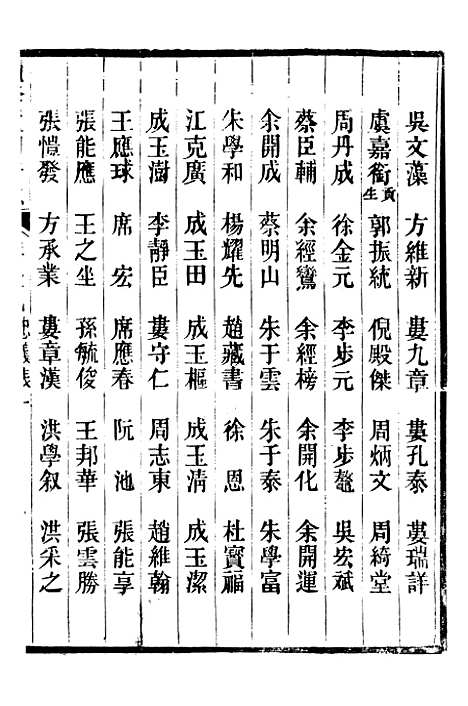 吳文藻 方維新 婁九章 婁孔泰 婁瑞詳
虞嘉銜貢生 郭振統 倪殿傑 周炳文 周綺堂
周丹成 徐金元 李步元 李步鼇 吳宏斌
蔡臣輔 余經鸞 余經榜 余開化 余開運
余開成 蔡明山 朱于雲 朱于泰 朱學富
朱學和 楊耀先 趙藏書 徐恩 杜寶福
江克廣 成玉田 成玉樞 成玉清 成玉潔
成玉澍 李靜臣 婁守仁 周志東 趙維翰
王應球 席宏 席應春 阮池 張能享
張能應 王之坐 孫毓俊 王邦華 張雲勝
張愷發 方承業 婁章漢 洪學叙 洪采之